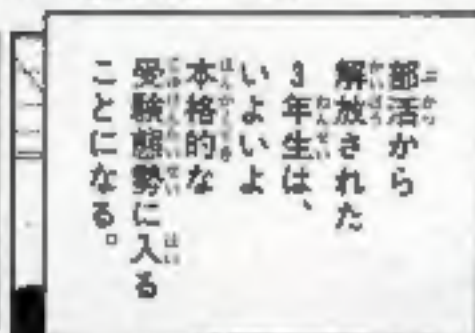 部活から
解放された
3年生は、
いよいよ
本格的な
受験態勢に入る
ことになる。